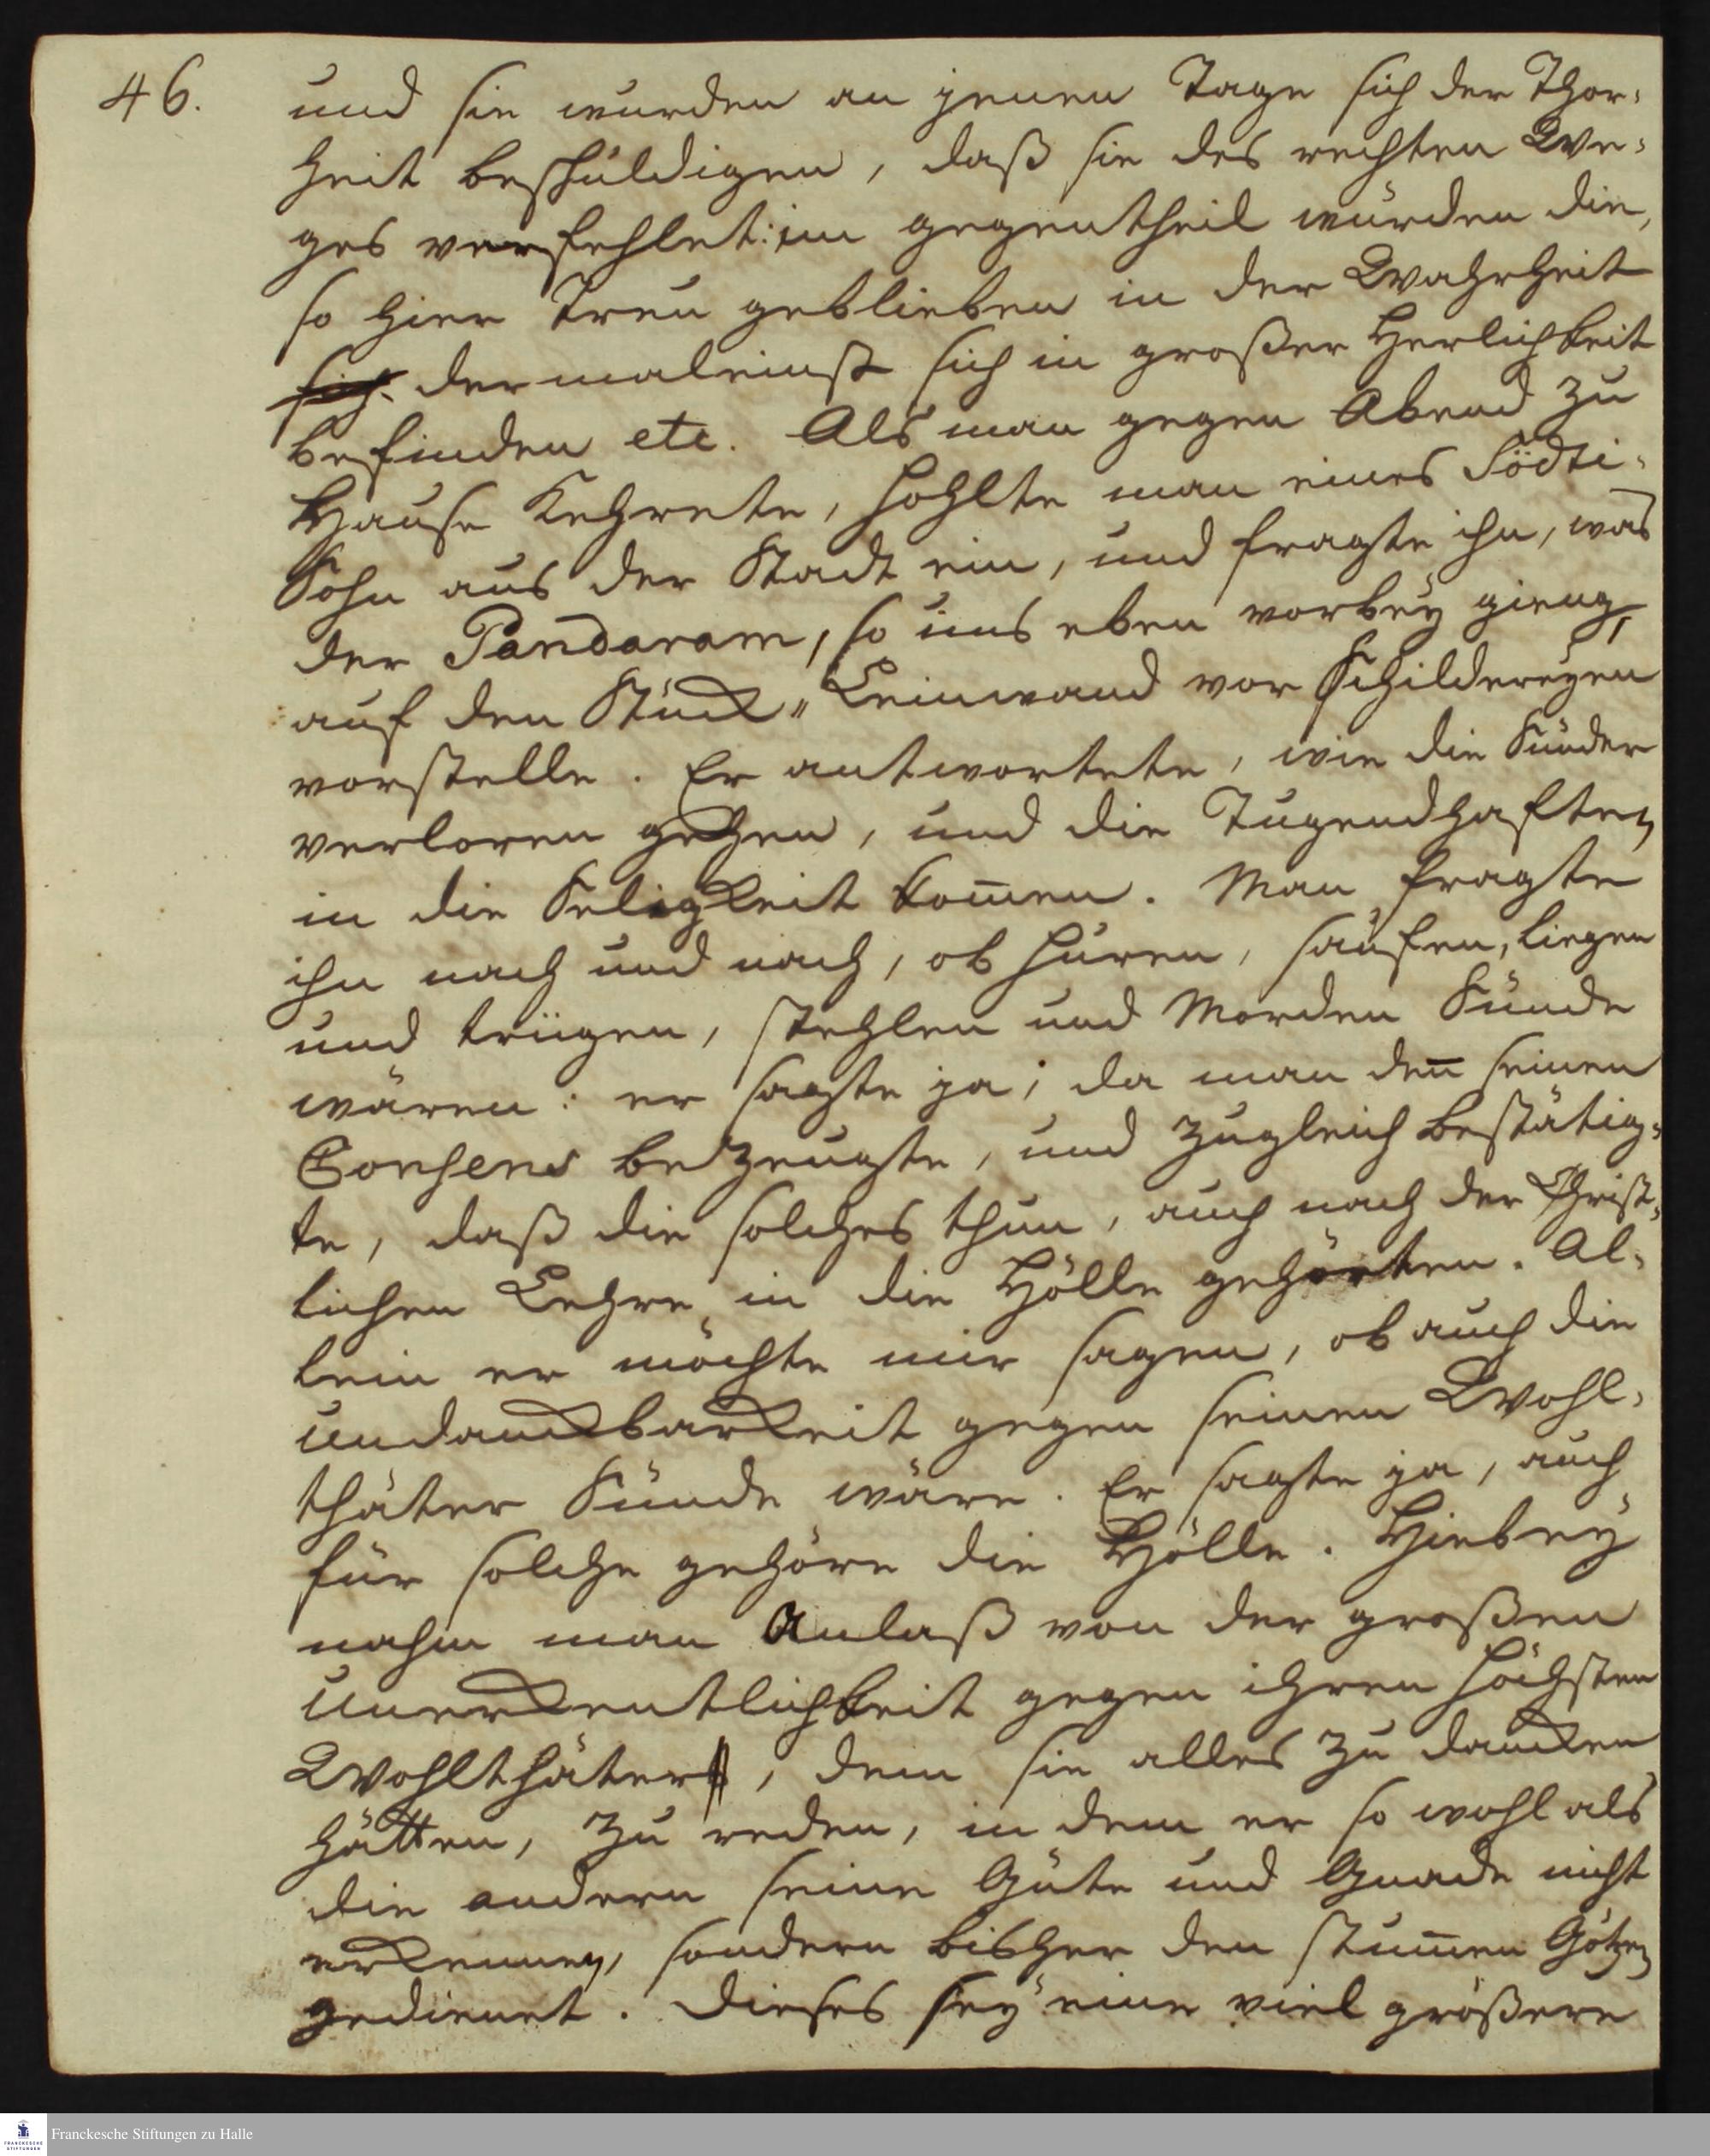 46.
und sie wurden an jenen Tage sich der Thor-
heit beschuldigen, daß sie des rechten We-
ges verfehlet: im gegentheil würden die,
so hier treu geblieben in der Wahrheit
sich dermaleinst sich in großer Herlichkeit
befinden etc. Als man gegen Abend zu
Hause Kehrete, hohlte man eines Södti-
Sohn aus der Stadt ein, und fragte ihn, was
der Pandaram, so uns eben vorbey gieng,
auf den Stück„Leinwand vor Schildereyen
vorstelle. Er antwortete, wie die Sünder
verloren gehen, und die Tugendhaften
in die Seligkeit kom̄en. Man fragte
ihn nach und nach, ob huren, saufen, liegen
und triigen, stehlen und Morden Sünde
wären: er sagte ja; da man den̄ seinen
Consens bezeugte, und zugleich bestätig-
te, daß die solches thun, auch nach der Christ-
lichen Lehre in die Hölle gehörten. Al-
lein er möchte mir sagen, ob auch die
undanckbarckeit gegen seinen Wohl-
thäter Sünde wäre. Er sagte ja, auch
für solche gehöre die Hölle. Hiebey
nahm man Anlaß von der großen
Unerckentlichkeit gegen ihren höchsten
Wohlthäter, dem sie alles zu dancken
hätten, zu reden, in dem er so wohl als
die andern seine Güte und Gnade nicht
erckennen, sondern bisher den stum̄en Götzen
gedienet. Dieses sey eine viel größere
Franckesche Stiftungen zu Halle